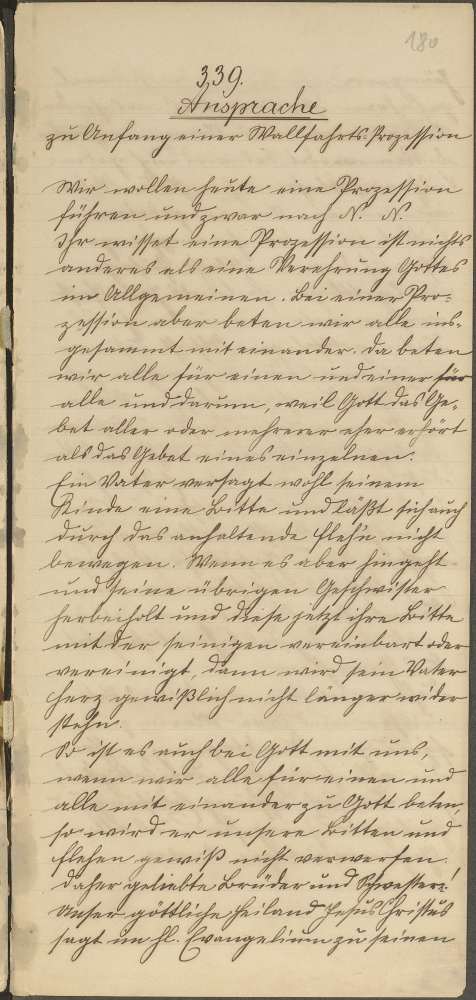 180
339.
Ansprache
zu Anfang einer Wallfahrts-Prozession
Wir wollen heute eine Prozession
führen und zwar nach N. N.
Ihr wisset eine Prozession ist nichts
anderes als eine Verehrung Gottes
im Allgemeinen. Bei einer Pro-
zession aber beten wir alle ins-
gesammt mit einander. Da beten
wir alle für einen und einer für
alle und darum, weil Gott das Ge-
bet aller oder mehrerer eher erhört
als das Gebet eines einzelnen.
Ein Vater versagt wohl seinem
Kinde eine Bitte und läßt sich auch
durch das anhaltende flehn nicht
bewegen. Wenn es aber hingeht
und seine übrigen Geschwister
herbeiholt und diese jetzt ihre Bitte
mit der seinigen vereinbart oder
vereinigt, dann wird sein Vater
herz gewißlich nicht länger wider
stehn.
So ist es auch bei Gott mit uns,
wenn wir alle für einen und
alle mit einander zu Gott beten,
so wird er unsere Bitten und
flehen gewiß nicht verwerfen.
Daher geliebte Brüder und Schwestern!
Unser göttliche Heiland Jesus Christus
sagt im hl. Evangelium zu seinen